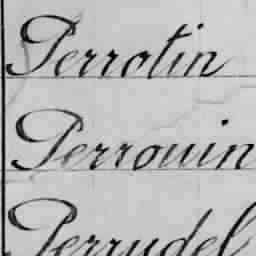 Perrotin
Perrouin
Perrudel